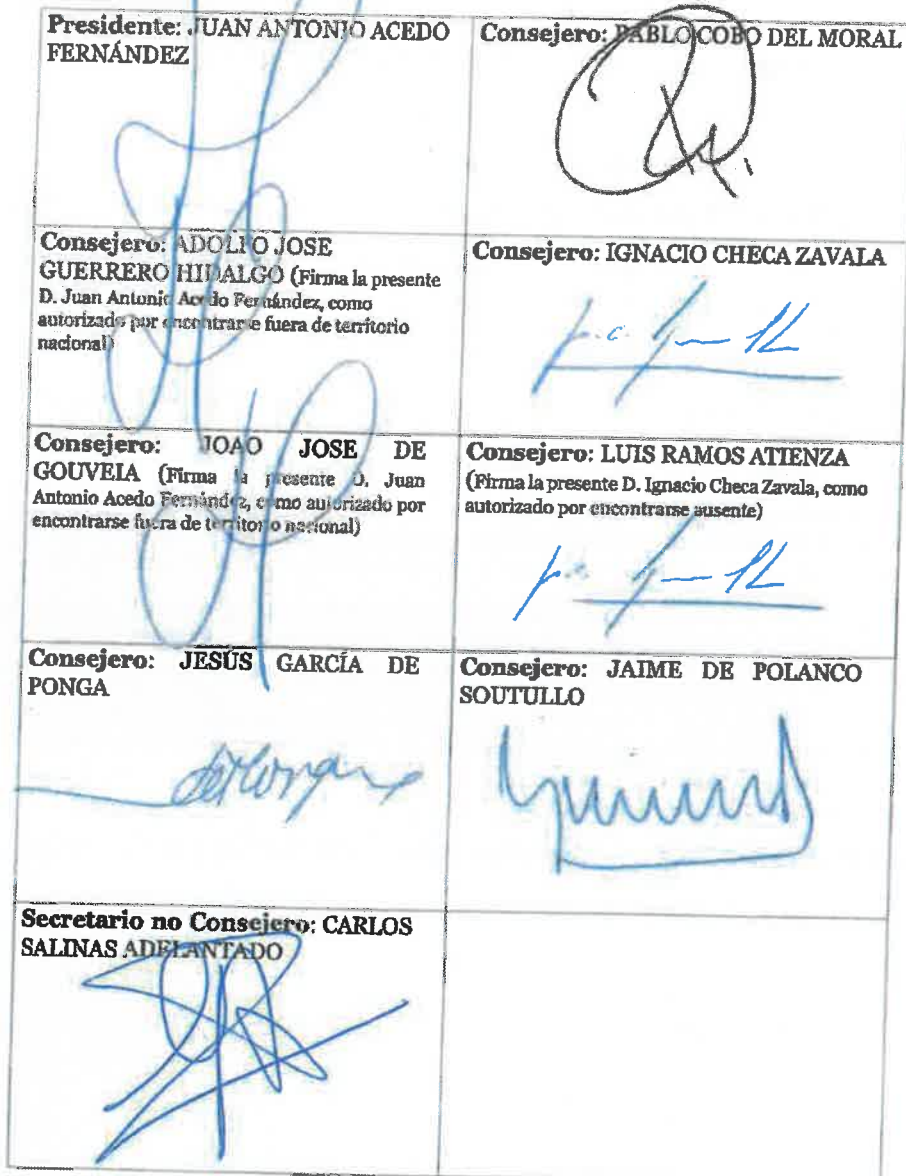 Presidente: JUAN ANTONIO ACEDO
FERNÁNDEZ
Consejero: PABLO COBO DEL MORAL
Consejero: ADOLFO JOSE
GUERRERO HIDALGO (Firma la presente
D. Juan Antonio Acedo Fernández, como
autorizado por encontrarse fuera de territorio
nacional)
Consejero: IGNACIO CHECA ZAVALA
Consejero: JOAO JOSE DE
GOUVEIA (Firma la presente D. Juan
Antonio Acedo Fernández, como autorizado por
encontrarse fuera de territorio nacional)
Consejero: LUIS RAMOS ATIENZA
(Firma la presente D. Ignacio Checa Zavala, como
autorizado por encontrarse ausente)
Consejero: JESÚS GARCÍA DE
PONGA
Consejero: JAIME DE POLANCO
SOUTULLO
Secretario no Consejero: CARLOS
SALINAS ADELANTADO